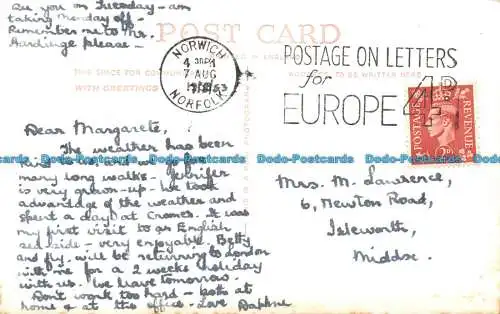 see you on Tuesday - am
taking Monday off -
Remember me to Mrs.
Hardinge please -
POST CARD
THIS SPACE FOR COMMUNICATION
TO BE WRITTEN HERE
WITH GREETINGS
NORWICH
7 AUG
1953
NORFOLK
POSTAGE ON LETTERS
for
EUROPE 4D
POSTAGE
REVENUE
Dear Margarete,
The weather has been
kind to us and we go for
many long walks. Jennifer
is very grown-up. We took
advantage of the weather and
spent a day at Cromer. It was
my first visit to an English
sea-side - very enjoyable. Betty
and fly. will be returning to London
with me for a 2 weeks holiday
with us. We leave tomorrow.
Don't work too hard - both at
home & at the office. Love Daphne
Mrs. M. Lawrence,
6, Newton Road,
Isleworth,
Middx.
Dodo-Postcards Dodo-Postcards Dodo-Postcards Dodo-Postcards Dodo-Postcards